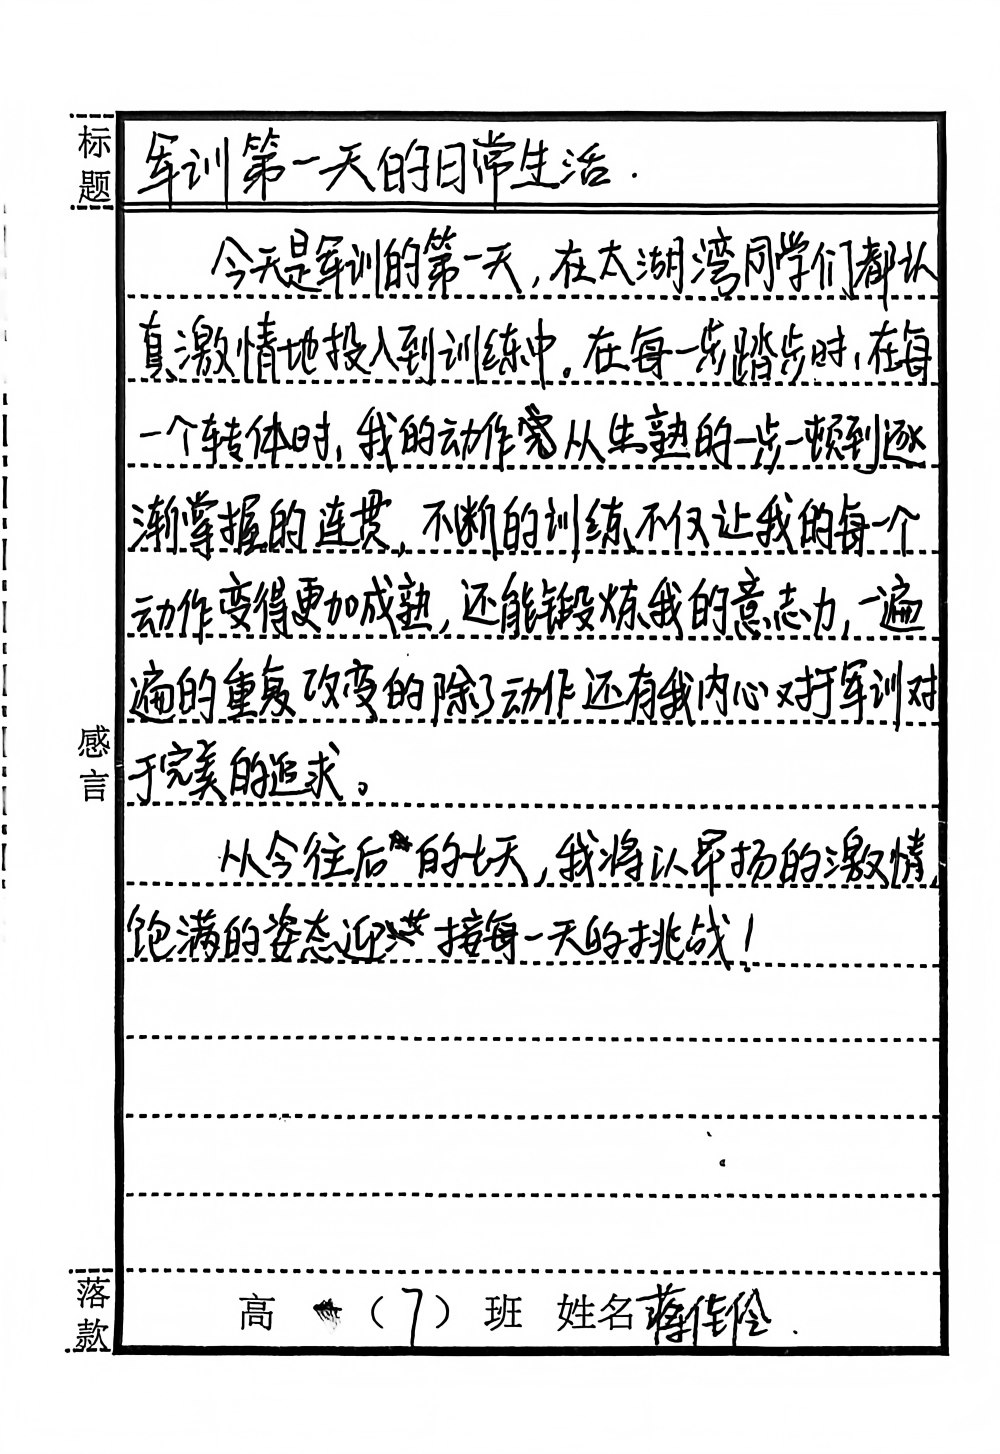 标题
军训第一天的日常生活.
今天是军训的第一天,在太湖湾同学们都认
真激情地投入到训练中。在每一步踏步时,在每
一个转体时,我的动作从生熟的一步一顿到逐
渐掌握的连贯,不断的训练不仅让我的每一个
动作变得更加成熟,还能锻炼我的意志力,一遍
遍的重复改变的除了动作还有我内心对于军训对
于完美的追求。
从今往后的七天,我将以昂扬的激情,
饱满的姿态迎接每一天的挑战!
感言
落款
高 (7)班 姓名蒋佳伶.